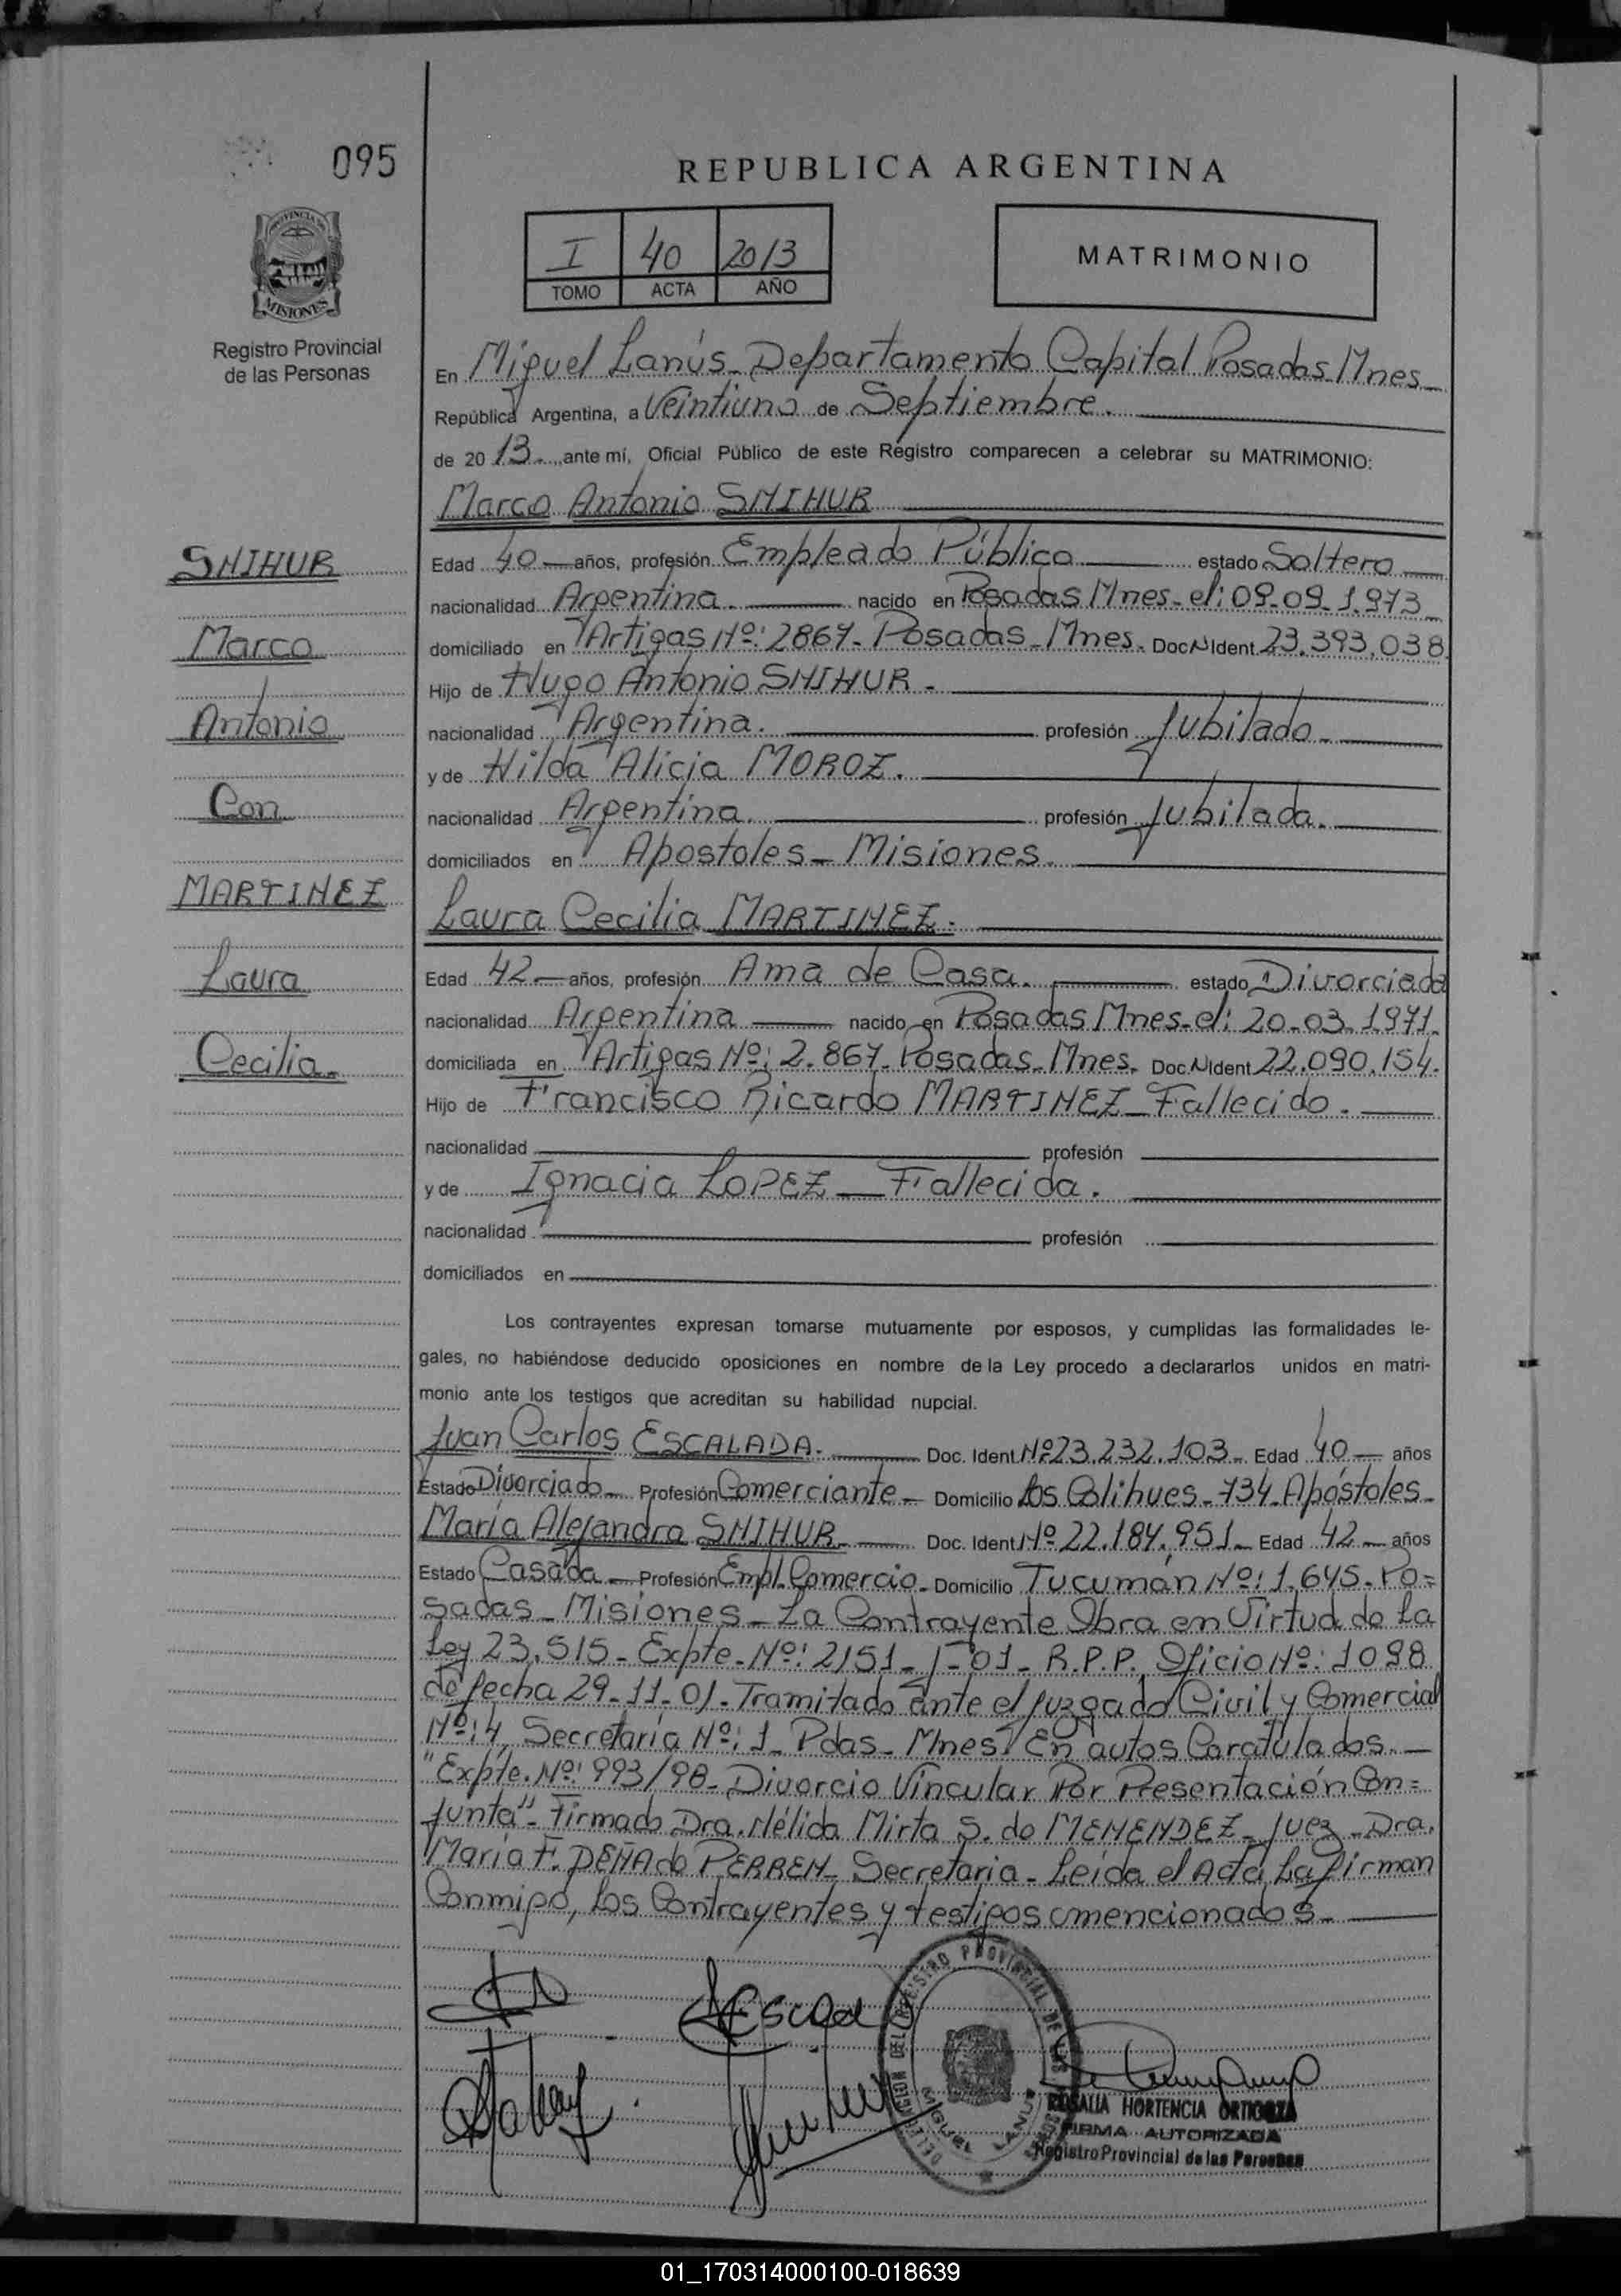 095
REPUBLICA ARGENTINA
PROVINCIA DE
MISIONES
Registro Provincial
de las Personas
I 40 2013
TOMO ACTA AÑO
MATRIMONIO
En Miguel Lanús - Departamento Capital Posadas Mnes -
República Argentina, a Veintiuno de Septiembre.
de 20 13 - , ante mí, Oficial Público de este Registro comparecen a celebrar su MATRIMONIO:
Marco Antonio SNIHUR
SNIHUR
Marco
Antonio
Con
MARTINEZ
Laura
Cecilia.
Edad 40 — años, profesión Empleado Público estado Soltero
nacionalidad Argentina. nacido en Posadas Mnes - el: 09-09-1.973
domiciliado en Artigas Nº: 2867 - Posadas - Mnes. Doc N Ident 23.393.038
Hijo de Hugo Antonio SNIHUR -
nacionalidad Argentina. profesión Jubilado -
y de Hilda Alicia MOROZ.
nacionalidad Argentina. profesión Jubilada.
domiciliados en Apostoles - Misiones.
Laura Cecilia MARTINEZ.
Edad 42 — años, profesión Ama de Casa. estado Divorciada
nacionalidad Argentina nacido en Posadas Mnes - el: 20-03-1971.
domiciliada en Artigas Nº: 2.867 - Posadas - Mnes. Doc N Ident 22.090.154.
Hijo de Francisco Ricardo MARTINEZ - Fallecido.
nacionalidad profesión
y de Ignacia LOPEZ - Fallecida.
nacionalidad profesión
domiciliados en
Los contrayentes expresan tomarse mutuamente por esposos, y cumplidas las formalidades le-
gales, no habiéndose deducido oposiciones en nombre de la Ley procedo a declararlos unidos en matri-
monio ante los testigos que acreditan su habilidad nupcial.
Juan Carlos ESCALADA. Doc. Ident Nº 23.232.103 - Edad 40 — años
Estado Divorciado - Profesión Comerciante - Domicilio Los Colihues - 734 - Apóstoles -
María Alejandra SNIHUR - Doc. Ident Nº 22.184.951 - Edad 42 — años
Estado Casada - Profesión Empl. Comercio - Domicilio Tucumán Nº: 1.645 - Po=
sadas - Misiones - La Contrayente Obra en Virtud de La
Ley 23.515 - Expte - Nº: 2151 - J - 01 - R.P.P. Oficio Nº: 1098
de fecha 29-11-01 - Tramitado ante el Juzgado Civil y Comercial
Nº: 4, Secretaría Nº: 1 - Pdas - Mnes. En autos Caratulados.
"Expte. Nº: 993/98 - Divorcio Vincular Por Presentación Con=
junta" - Firmado Dra. Nélida Mirta S. de MENENDEZ - Juez - Dra.
María F. PEÑA de PERREN - Secretaria - Leída el Acta, La firman
Conmigo, Los Contrayentes y testigos mencionados -
DELEGACION DEL REGISTRO PROVINCIAL DE LAS
MIGUEL LANUS
ROSALIA HORTENCIA ORTIGOZA
FIRMA AUTORIZADA
Registro Provincial de las Personas
01_170314000100-018639